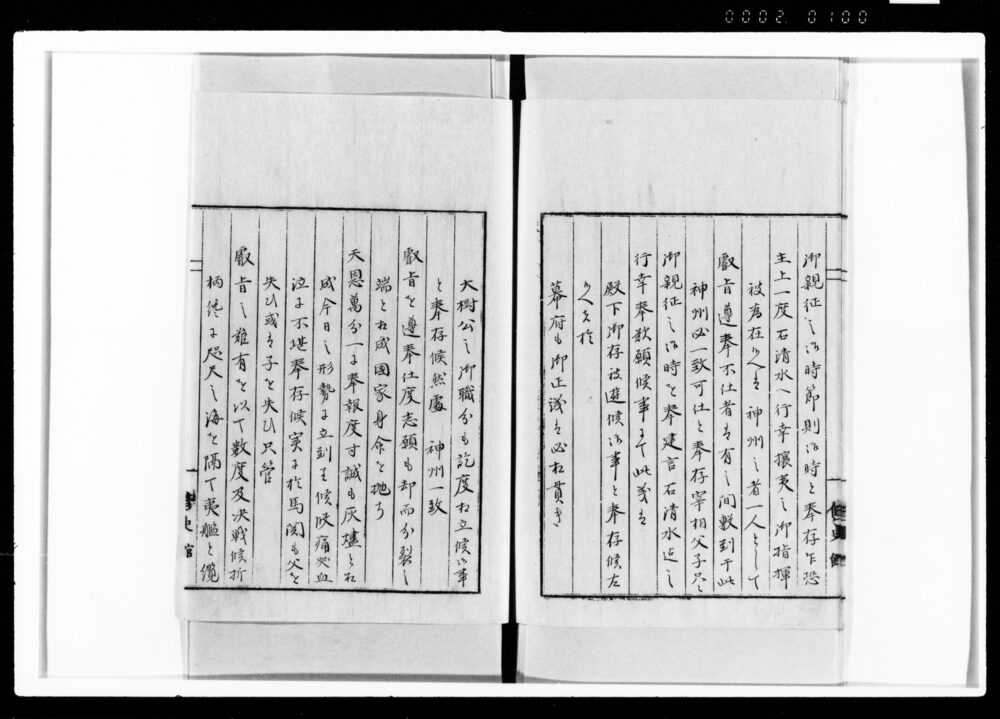 0002 0100
御親征之御時節則御時と奉存乍恐
主上一度石清水へ行幸攘夷之御指揮
被為在候へは 神州之者一人として
叡旨遵奉不仕者は有之間敷到于此
神州必一致可仕と奉存宰相父子尽
御親征之御時を奉建言石清水迄之
行幸奉歎願候事にて此義は
殿下御存被遊候御事と奉存候左
候へ者於
幕府も御正議は必相貫き
大樹公之御職分も訖度相立候御事
と奉存候然處 神州一致
叡旨を遵奉仕度志願も却而分裂之
端と相成國家身命を抛ち
天恩萬分一に奉報度寸誠も灰燼と相
成今日之形勢に立到至候痛哭血
泣に不堪奉存候実に於馬関も父を
失ひ或は子を失ひ只管
叡旨之難有を以て數度及决戦候折
柄僅に咫尺之海を隔て夷艦を纜
修史館
修史館